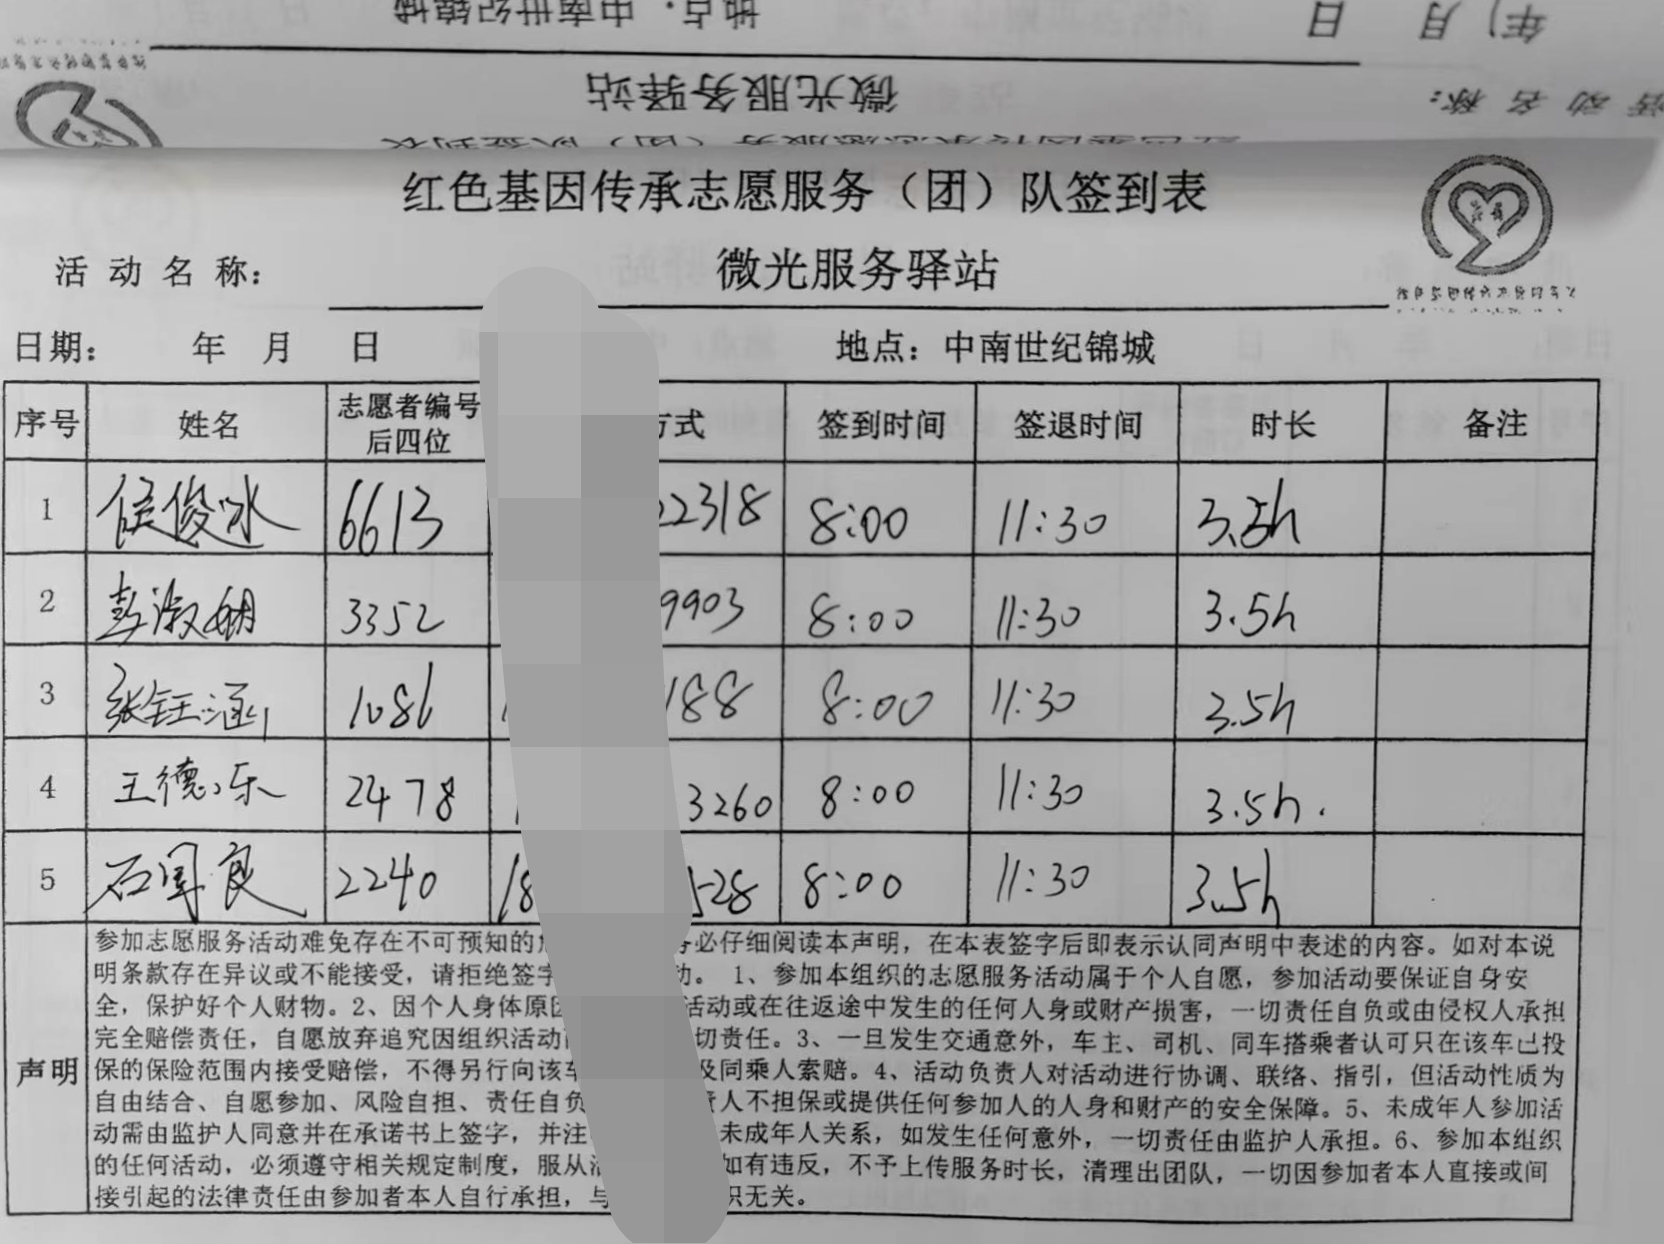 地点：中南世纪锦城
年 月 日
微光服务驿站
活动名称：
红色基因传承志愿服务（团）队签到表
红色基因传承志愿服务（团）队签到表
活动名称：
微光服务驿站
日期： 年 月 日 地点：中南世纪锦城
序号 姓名 志愿者编号后四位 方式 签到时间 签退时间 时长 备注
1 侯俊冰 6613 22318 8:00 11:30 3.5h
2 彭淑娴 3352 9903 8:00 11:30 3.5h
3 张钰涵 1086 188 8:00 11:30 3.5h
4 王德乐 2478 3260 8:00 11:30 3.5h.
5 石国良 2240 18 528 8:00 11:30 3.5h
声明
参加志愿服务活动难免存在不可预知的 必仔细阅读本声明，在本表签字后即表示认同声明中表述的内容。如对本说
明条款存在异议或不能接受，请拒绝签字 动。 1、参加本组织的志愿服务活动属于个人自愿，参加活动要保证自身安
全，保护好个人财物。2、因个人身体原因 活动或在往返途中发生的任何人身或财产损害，一切责任自负或由侵权人承担
完全赔偿责任，自愿放弃追究因组织活动 切责任。3、一旦发生交通意外，车主、司机、同车搭乘者认可只在该车已投
保的保险范围内接受赔偿，不得另行向该车 及同乘人索赔。4、活动负责人对活动进行协调、联络、指引，但活动性质为
自由结合、自愿参加、风险自担、责任自负 责人不担保或提供任何参加人的人身和财产的安全保障。5、未成年人参加活
动需由监护人同意并在承诺书上签字，并注 未成年人关系，如发生任何意外，一切责任由监护人承担。6、参加本组织
的任何活动，必须遵守相关规定制度，服从 如有违反，不予上传服务时长，清理出团队，一切因参加者本人直接或间
接引起的法律责任由参加者本人自行承担，与 织无关。